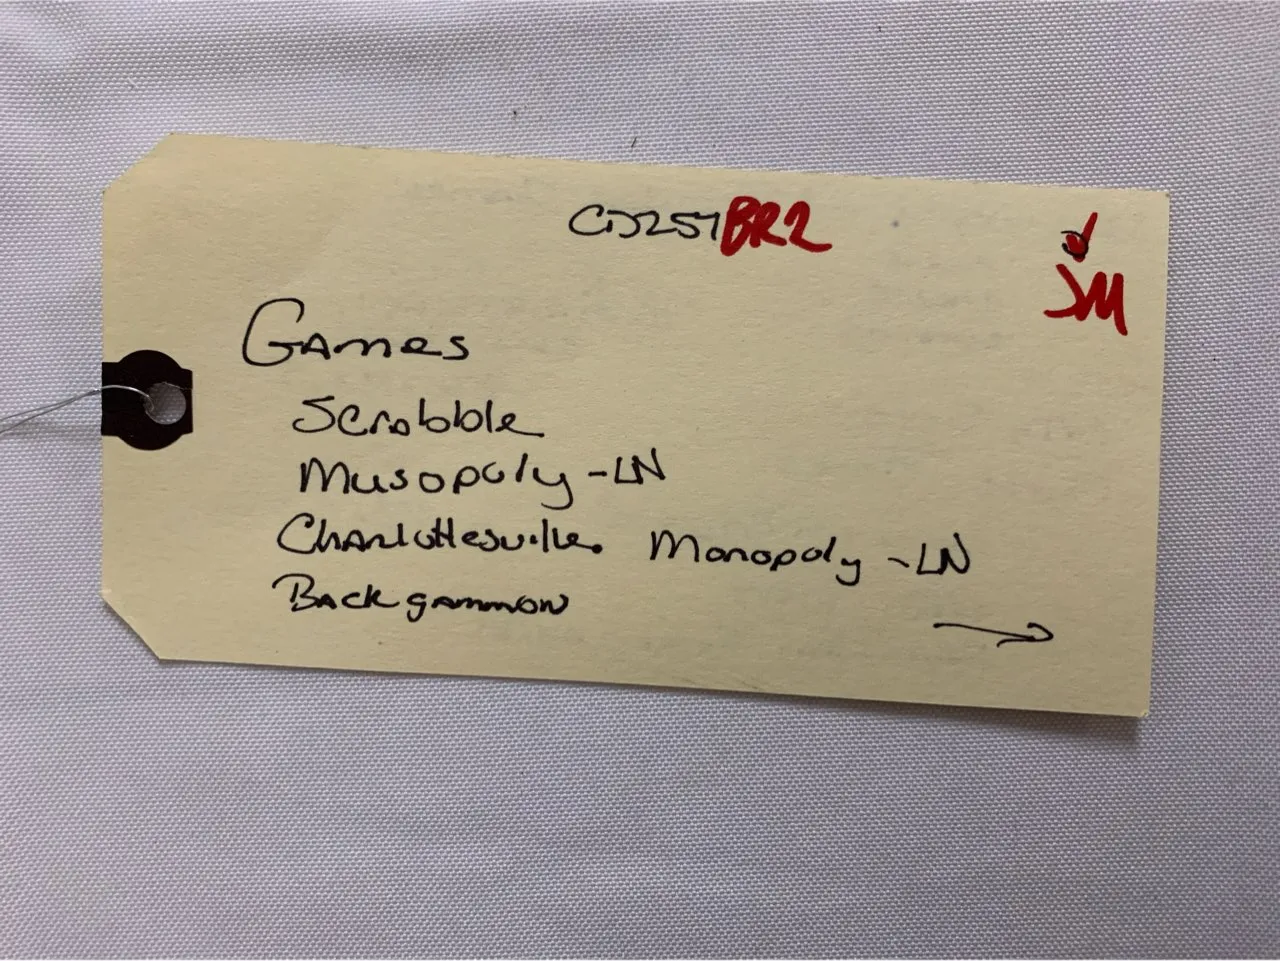 CJ257BR2
JM
Games
Scrabble
Musopoly -LN
Charlottesville Monopoly -LN
Backgammon